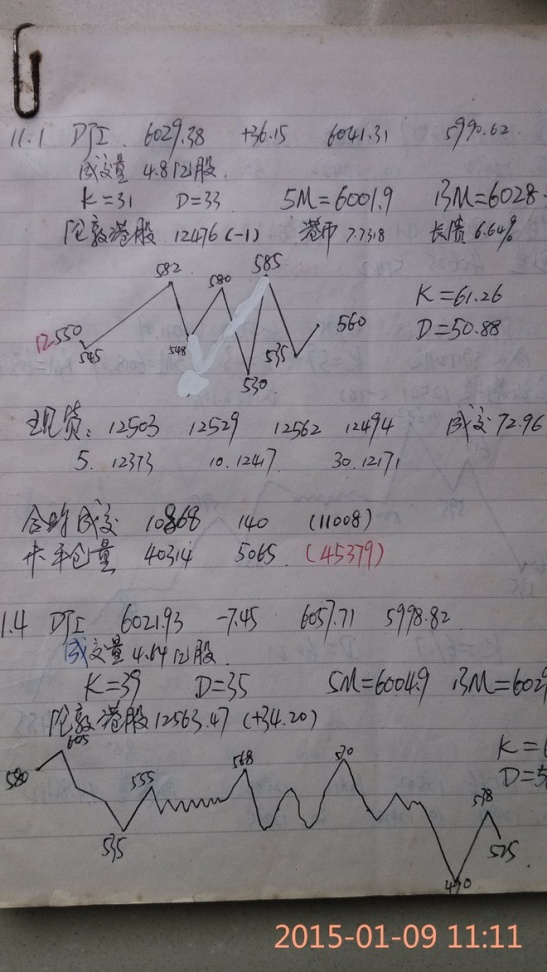 11.1 DJI 6029.38 +36.15 6041.31 5990.62
成交量 4.81亿股
K=31 D=33 5M=6001.9 13M=6028.
伦敦港股 12476 (-1) 港币 7.7318 长债 6.64%
582 580 585
K=61.26
12550 560
D=50.88
545 548 535
530
现货: 12503 12529 12562 12494 成交 72.96
5. 12373 10. 12417 30. 12171
合约成交 10868 140 (11008)
未平仓量 40314 5065 (45379)
1.4 DJI 6021.93 -7.45 6057.71 5998.82
成交量 4.64亿股
K=39 D=35 5M=6004.9 13M=602
伦敦港股 12563.47 (+34.20)
605 K=
580 568 570
555 D=5
578
535 525